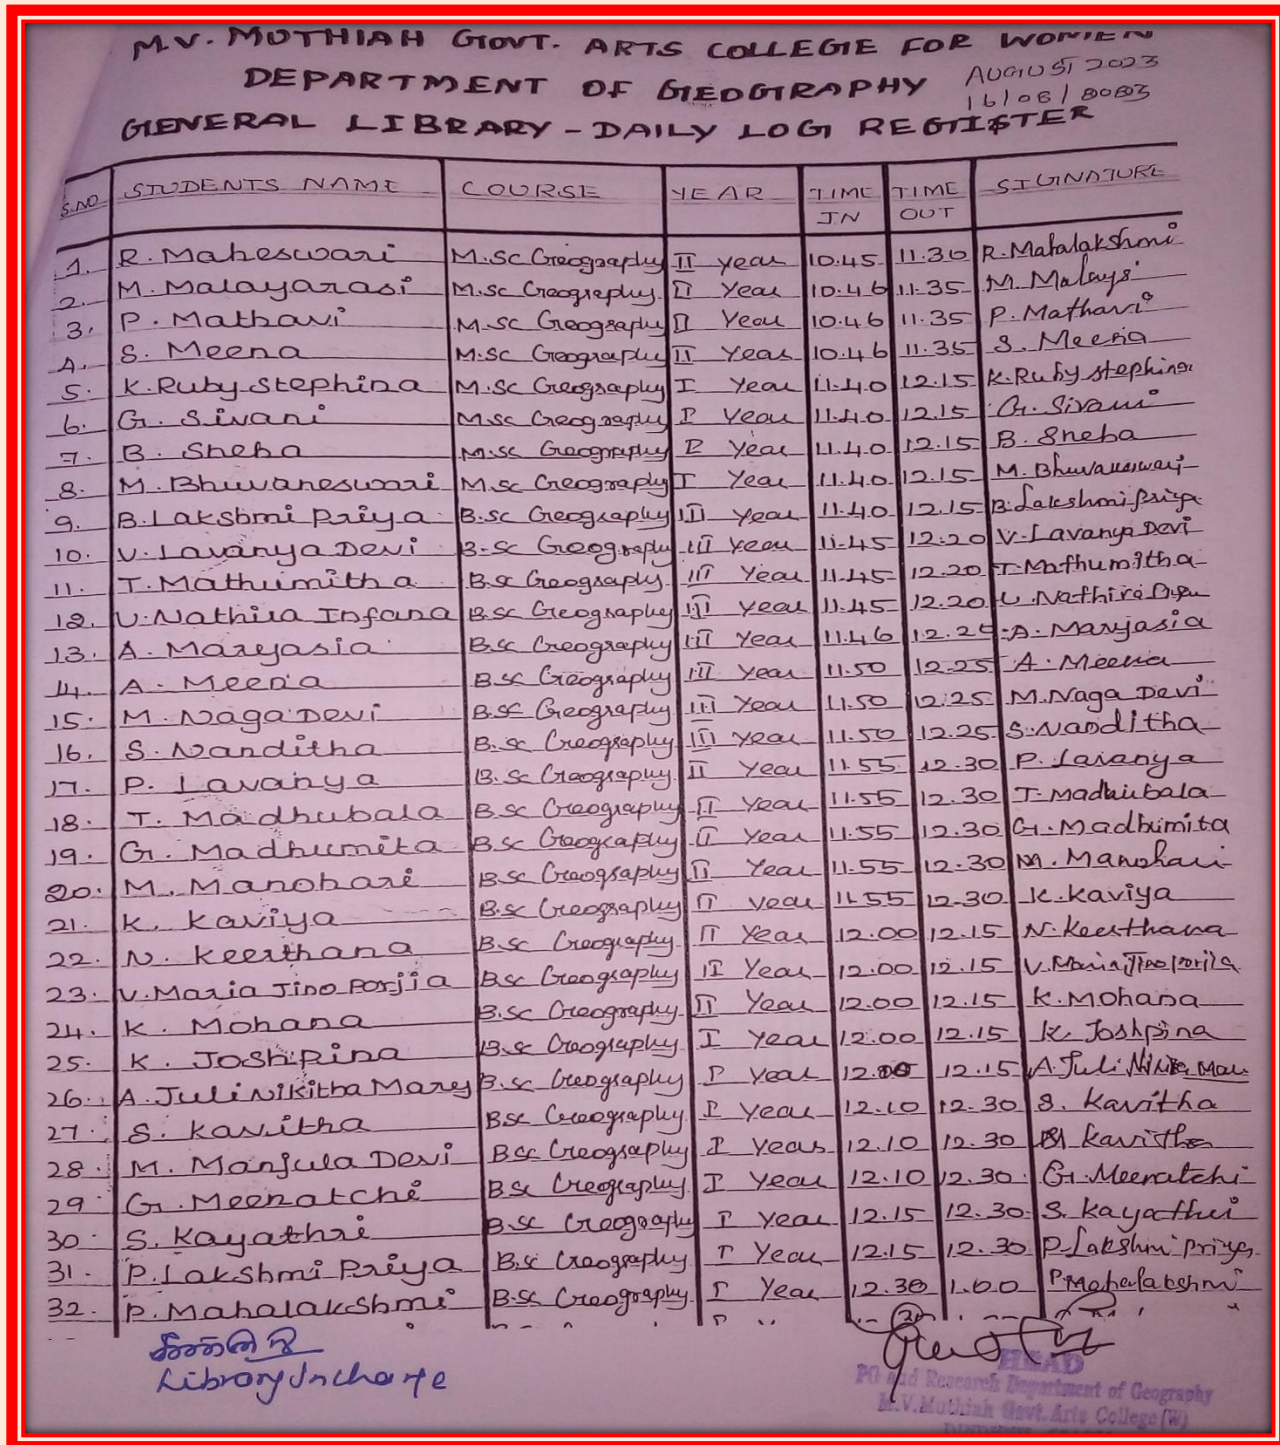 M.V. MUTHIAH GOVT. ARTS COLLEGE FOR WOMEN
DEPARTMENT OF GEOGRAPHY AUGUST 2023
16/08/2023
GENERAL LIBRARY - DAILY LOG REGISTER
S.NO STUDENTS NAME COURSE YEAR TIME IN TIME OUT SIGNATURE
1. R. Maheswari M.Sc Geography II year 10.45 11.30 R. Mahalakshmi
2. M. Malayarasi M.Sc Geography II Year 10.46 11.35 M. Malaya
3. P. Mathavi M.Sc Geography II Year 10.46 11.35 P. Mathavi
4. S. Meena M.Sc Geography II Year 10.46 11.35 S. Meena
5. K. Ruby Stephina M.Sc Geography I Year 11.40 12.15 K. Ruby stephina
6. G. Sivani M.Sc Geography I Year 11.40 12.15 G. Sivani
7. B. Sneha M.Sc Geography I Year 11.40 12.15 B. Sneha
8. M. Bhuvaneswari M.Sc Geography I Year 11.40 12.15 M. Bhuvaneswari
9. B. Lakshmi Priya B.Sc Geography III year 11.40 12.15 B. Lakshmi Priya
10. V. Lavanya Devi B.Sc Geography III year 11.45 12.20 V. Lavanya Devi
11. T. Mathumitha B.Sc Geography III Year 11.45 12.20 T. Mathumitha
12. U. Nathira Infana B.Sc Geography III year 11.45 12.20 U. Nathira
13. A. Maryasia B.Sc Geography III Year 11.46 12.25 A. Maryasia
14. A. Meena B.Sc Geography III year 11.50 12.25 A. Meena
15. M. Naga Devi B.Sc Geography III Year 11.50 12.25 M. Naga Devi
16. S. Nanditha B.Sc Geography III year 11.50 12.25 S. Nanditha
17. P. Lavanya B.Sc Geography II Year 11.55 12.30 P. Lavanya
18. T. Madhubala B.Sc Geography II Year 11.55 12.30 T. Madhubala
19. G. Madhumita B.Sc Geography II Year 11.55 12.30 G. Madhumita
20. M. Manohari B.Sc Geography II Year 11.55 12.30 M. Manohari
21. K. Kaviya B.Sc Geography II year 11.55 12.30 K. Kaviya
22. N. Keerthana B.Sc Geography II Year 12.00 12.15 N. Keerthana
23. V. Maria Jino Porjia B.Sc Geography II Year 12.00 12.15 V. Maria Jino
24. K. Mohana B.Sc Geography II Year 12.00 12.15 K. Mohana
25. K. Joshpina B.Sc Geography I Year 12.00 12.15 K. Joshpina
26. A. Juli Nikitha Mary B.Sc Geography I Year 12.00 12.15 A. Juli
27. S. Kavitha B.Sc Geography I Year 12.10 12.30 S. Kavitha
28. M. Manjula Devi B.Sc Geography I Year 12.10 12.30 Kavitha
29 G. Meenatchi B.Sc Geography I Year 12.10 12.30 G. Meenatchi
30. S. Kayathri B.Sc Geography I Year 12.15 12.30 S. Kayathri
31. P. Lakshmi Priya B.Sc Geography I Year 12.15 12.30 P. Lakshmi Priya
32. P. Mahalakshmi B.Sc Geography I Year 12.30 1.00 P. Mahalakshmi
Library Incharge
HEAD
PG and Research Department of Geography
M.V.Muthiah Govt. Arts College (W)